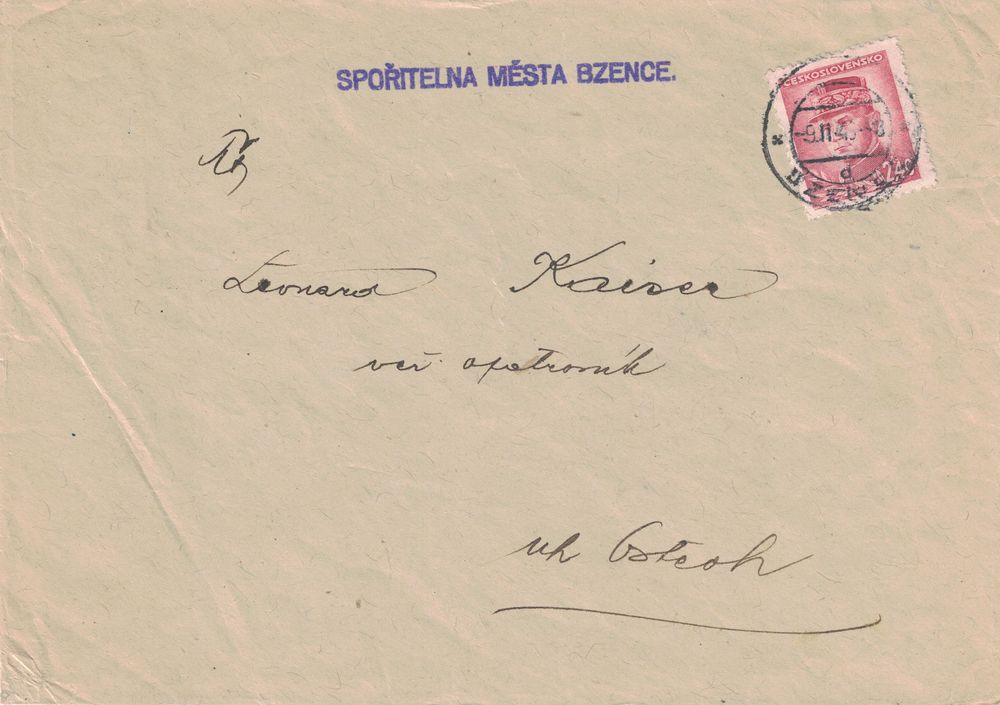 SPOŘITELNA MĚSTA BZENCE.
ČESKOSLOVENSKO
-9.II.4 -8
2.40
d
BZENEC
Leonard Kaiser
veř. opatrovník
uh Ostroh